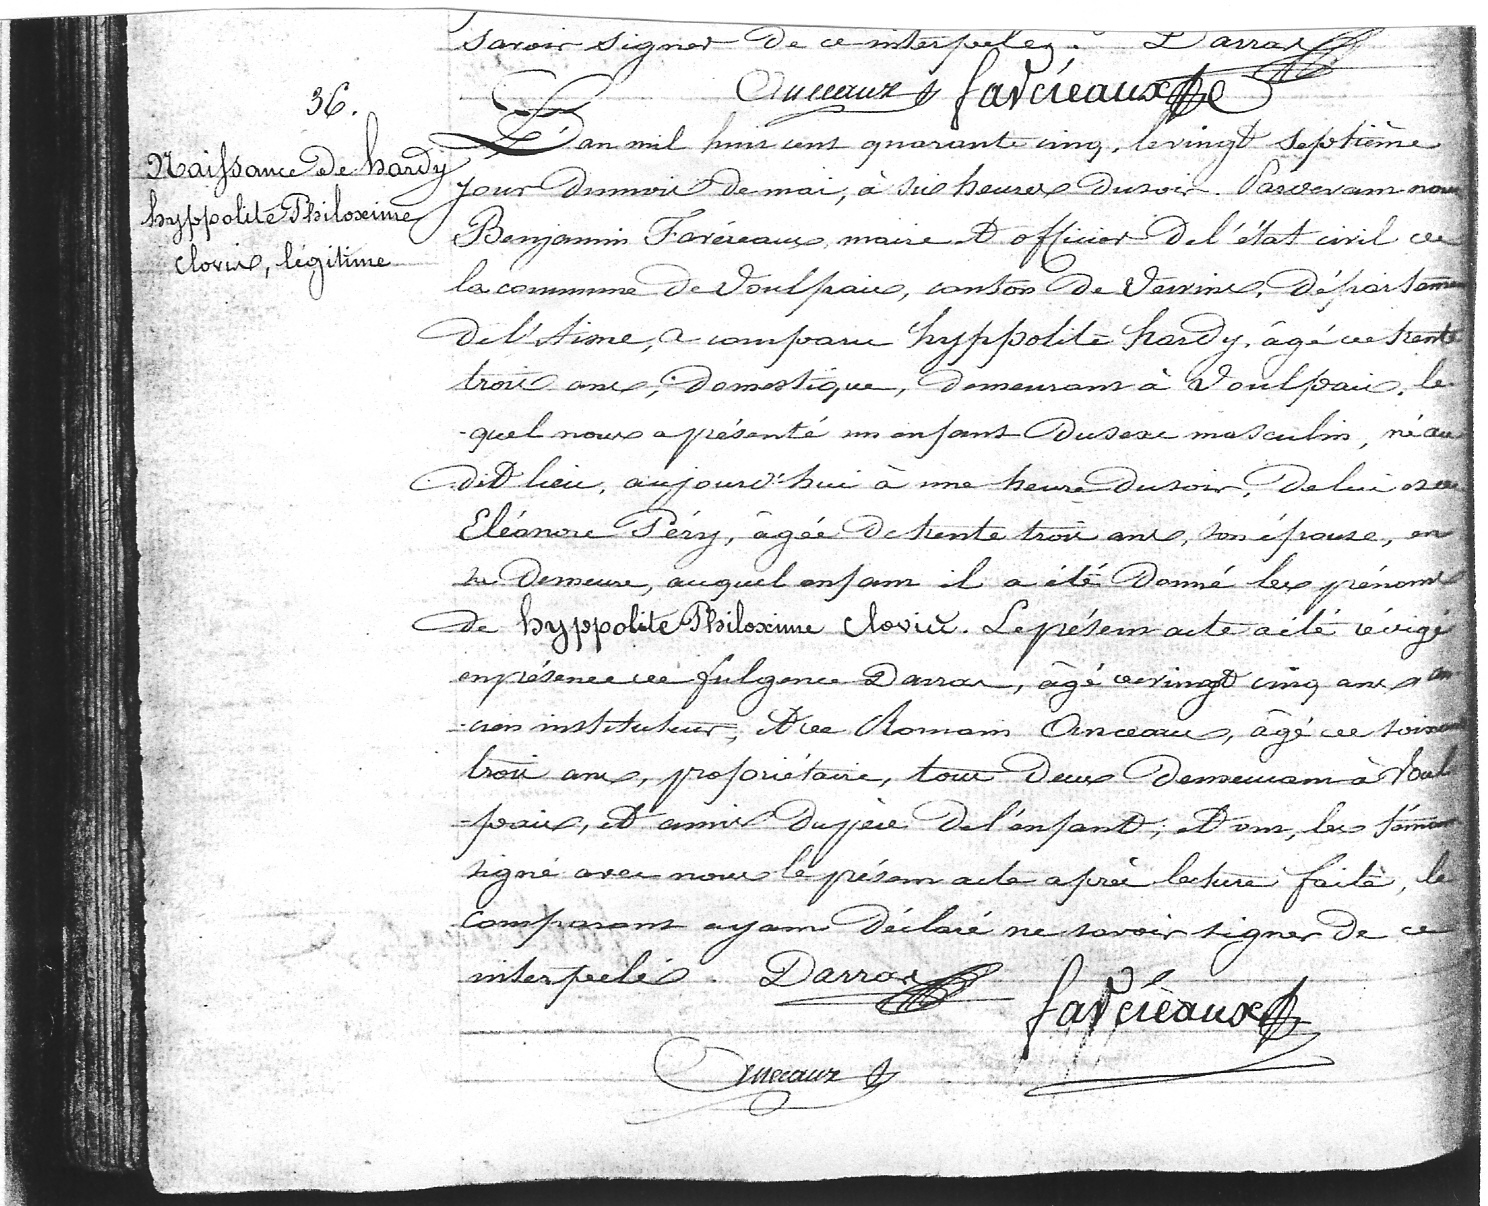 savoir signer de ce interpelé. Darras
Anceaux favéreaux
36.
Naissance de hardy
hyppolite Philoxime
clovis, légitime
L'an mil huit cent quarante cinq, le vingt septième
jour du mois de mai, à six heures du soir. Pardevant nous
Benjamin Favéreaux, maire et officier de l'état civil de
la commune de Voulpaix, canton de Vervins, départemen
de l'Aisne, a comparu hyppolite hardy, âgé de trente
trois ans, domestique, demeurant à Voulpaix, le
-quel nous a présenté un enfant du sexe masculin, né au
dit lieu, aujourd'hui à une heure du soir, de lui et de
Eléonore Péry, âgée de trente trois ans, son épouse, en
sa demeure, auquel enfant il a été donné les prénoms
de hyppolite Philoxime clovis. Le présent acte a été rédigé
en présence de fulgence Darras, âgé de vingt cinq ans, an
-cien instituteur, et de Romain Anceaux, âgé de soixante
trois ans, propriétaire, tous deux demeurant à Voul
-paix, et amis du père de l'enfant; et ont, les témoins
signé avec nous le présent acte après lecture faite, le
comparant ayant déclaré ne savoir signer de ce
interpelé. Darras
favéreaux
Anceaux